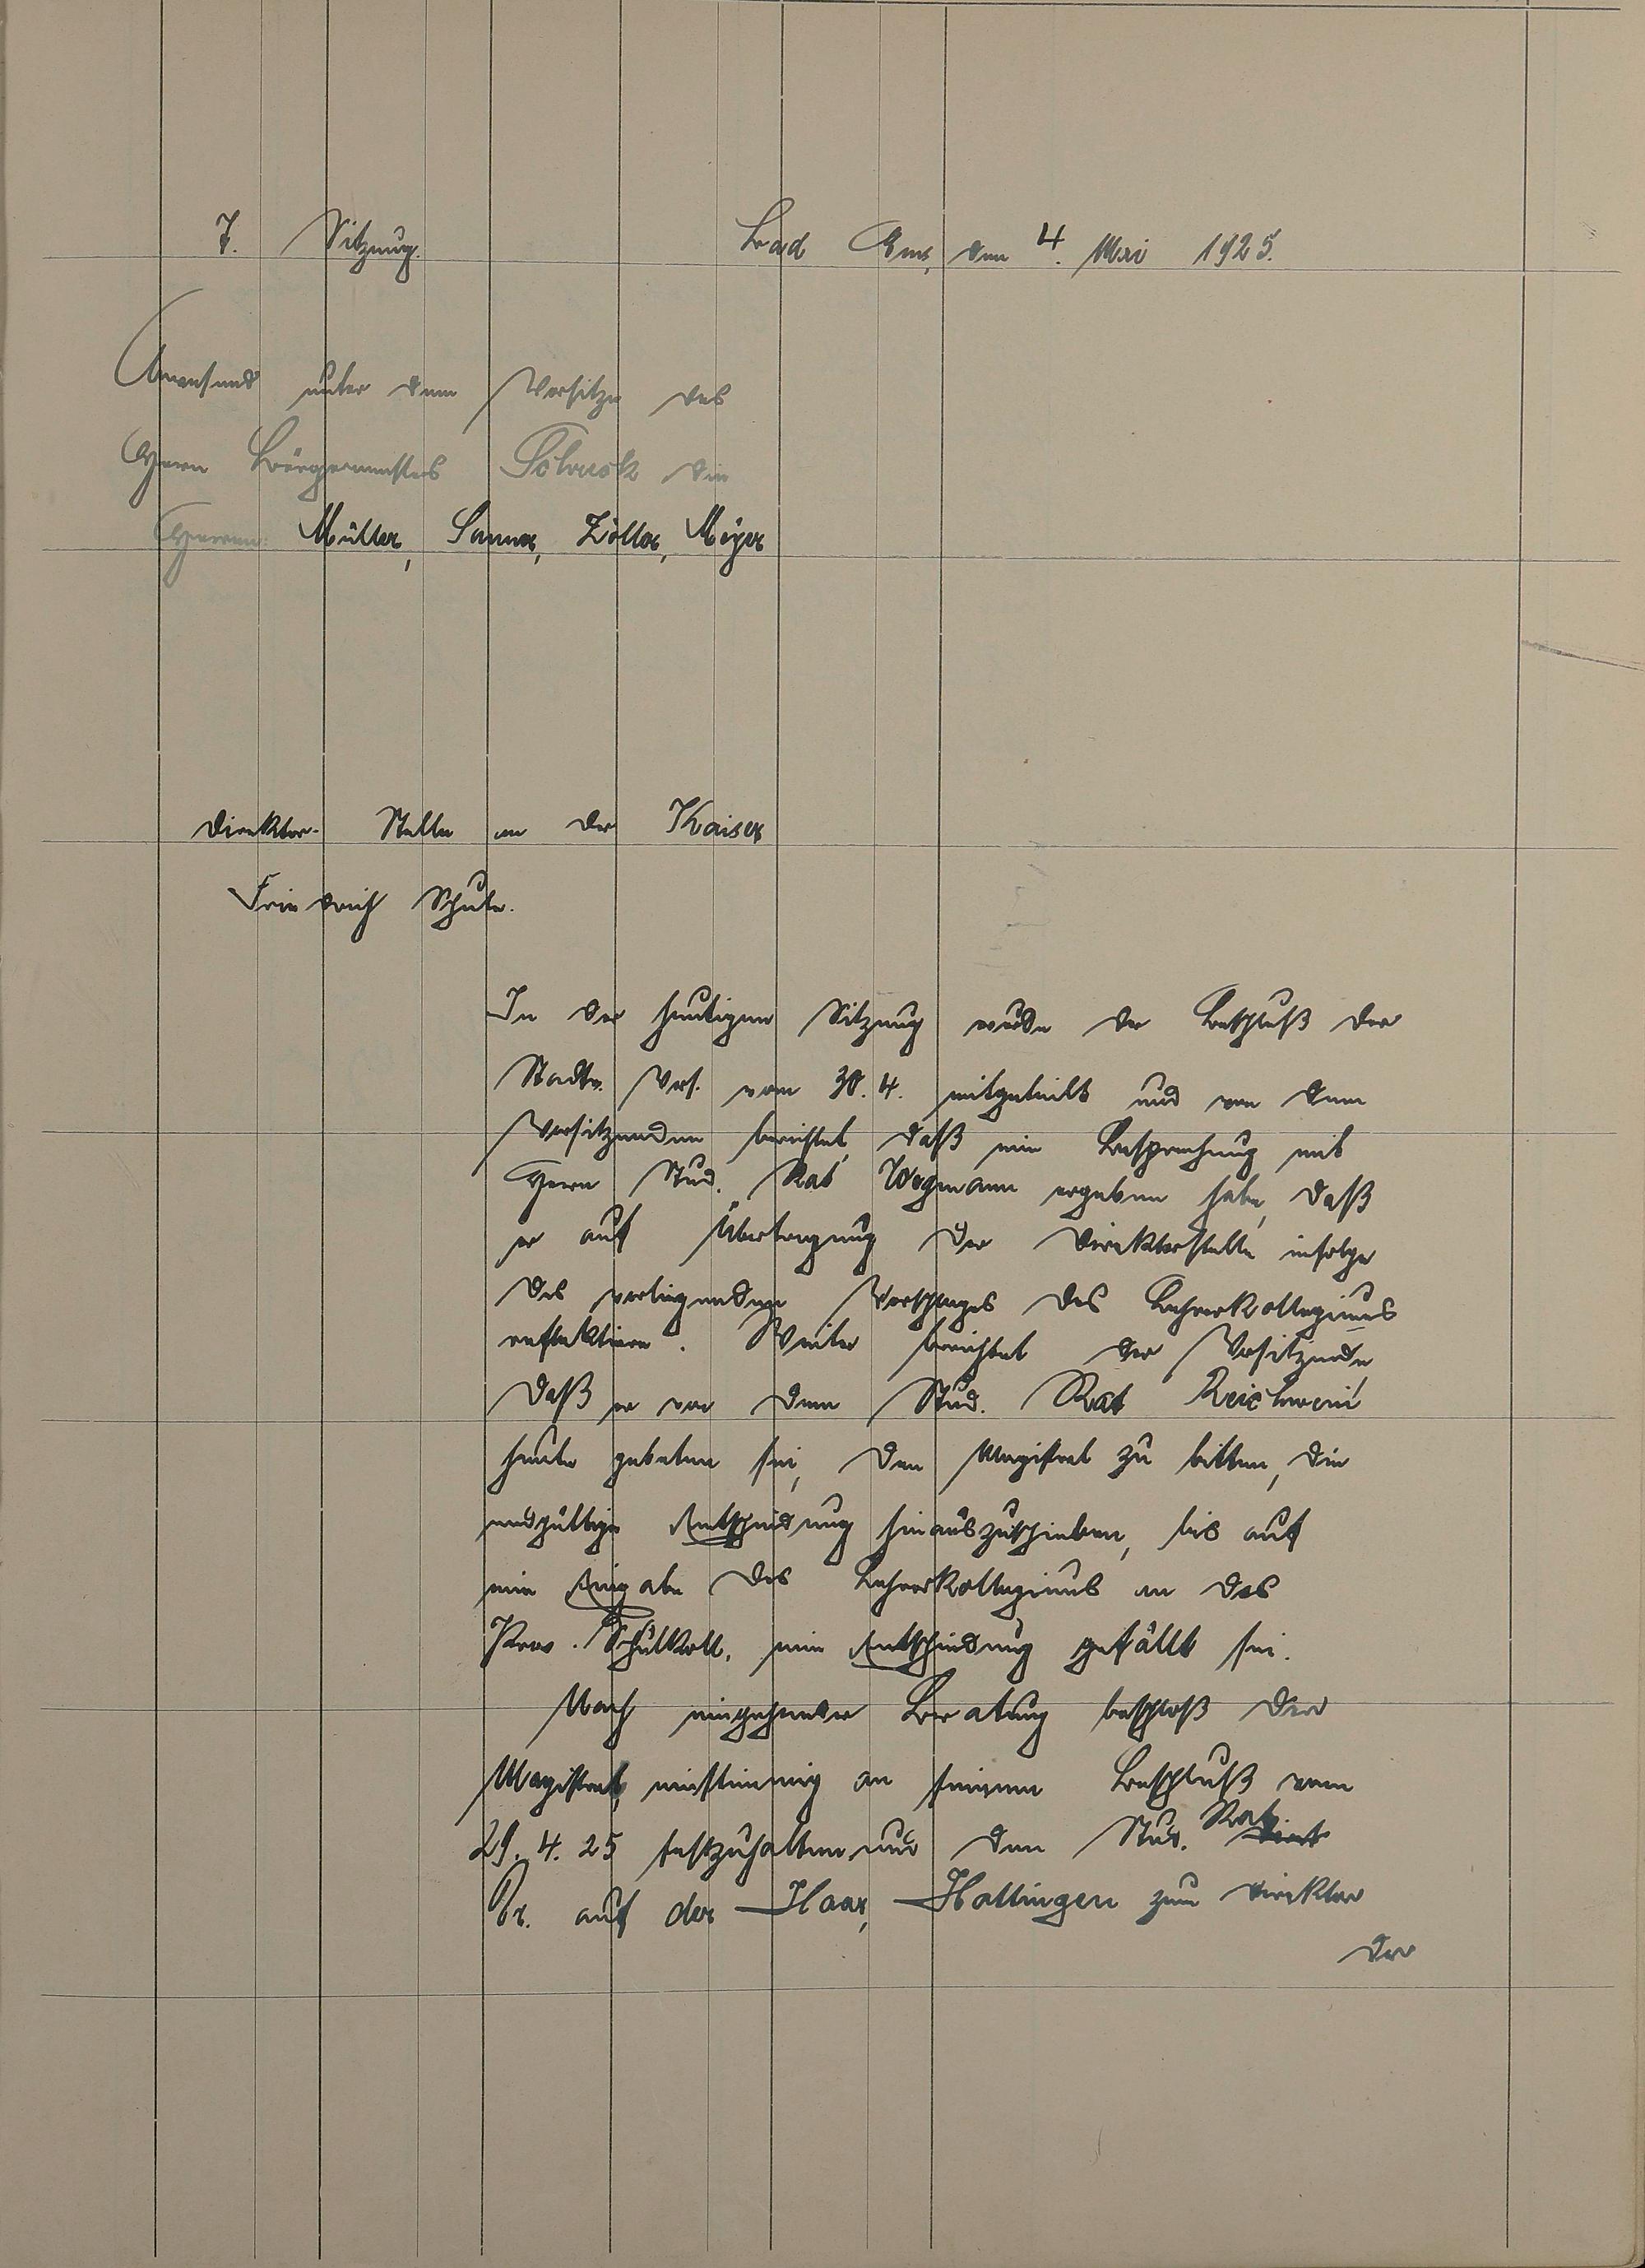 7. Sitzung. Bad Ems, den 4. Mai 1925.
Anwesend unter dem Vorsitze des
Herrn Bürgermeisters Schuck die
Herren: Müller, Sanner, Zöller, Meyer
Direktor-Stelle an der Kaiser
Friedrich Schule.
In der heutigen Sitzung wurde der Beschluß der
Stadtv. Vers. vom 30.4. mitgeteilt und von dem
Vorsitzenden berichtet, daß eine Besprechung mit
Herrn Stud. Rat Wegmann ergeben habe, daß
er auf Übertragung der Direktorstelle infolge
des vorliegenden Vorschlages des Lehrerkollegiums
reflektiere. Weiter berichtet der Vorsitzende
daß er von dem Stud. Rat Reichwein
heute gebeten sei, den Magistrat zu bitten, die
endgültige Entscheidung hinauszuschieben, bis auf
eine Eingabe des Lehrerkollegiums an das
Prov. Schulkoll. eine Entscheidung gefällt sei.
Nach eingehender Beratung beschloß der
Magistrat, einstimmig an seinem Beschluß vom
29. 4. 25 festzuhalten und den Stud. Rat
Dr. auf der Haar, Hattingen zum Direktor
der